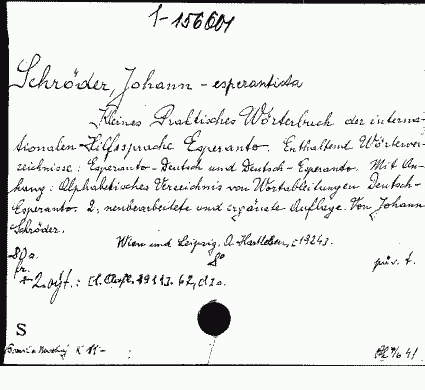 1-156601
Schröder, Johann - esperantista
Kleines Praktisches Wörterbuch der interna-
tionalen Hilfssprache Esperanto. Enthaltend Wörterver-
zeichnisse: Esperanto-Deutsch und Deutsch-Esperanto. Mit An-
hang: Alphabetisches Verzeichnis von Wortableitungen Deutsch-
Esperanto. 2., neubearbeitete und ergänzte Auflage. Von Johann
Schröder.
Wien und Leipzig, A. Hartleben, [1924].
8°
přív. t.
2. výt.: [1. Aufl. 1911]. 62,
S